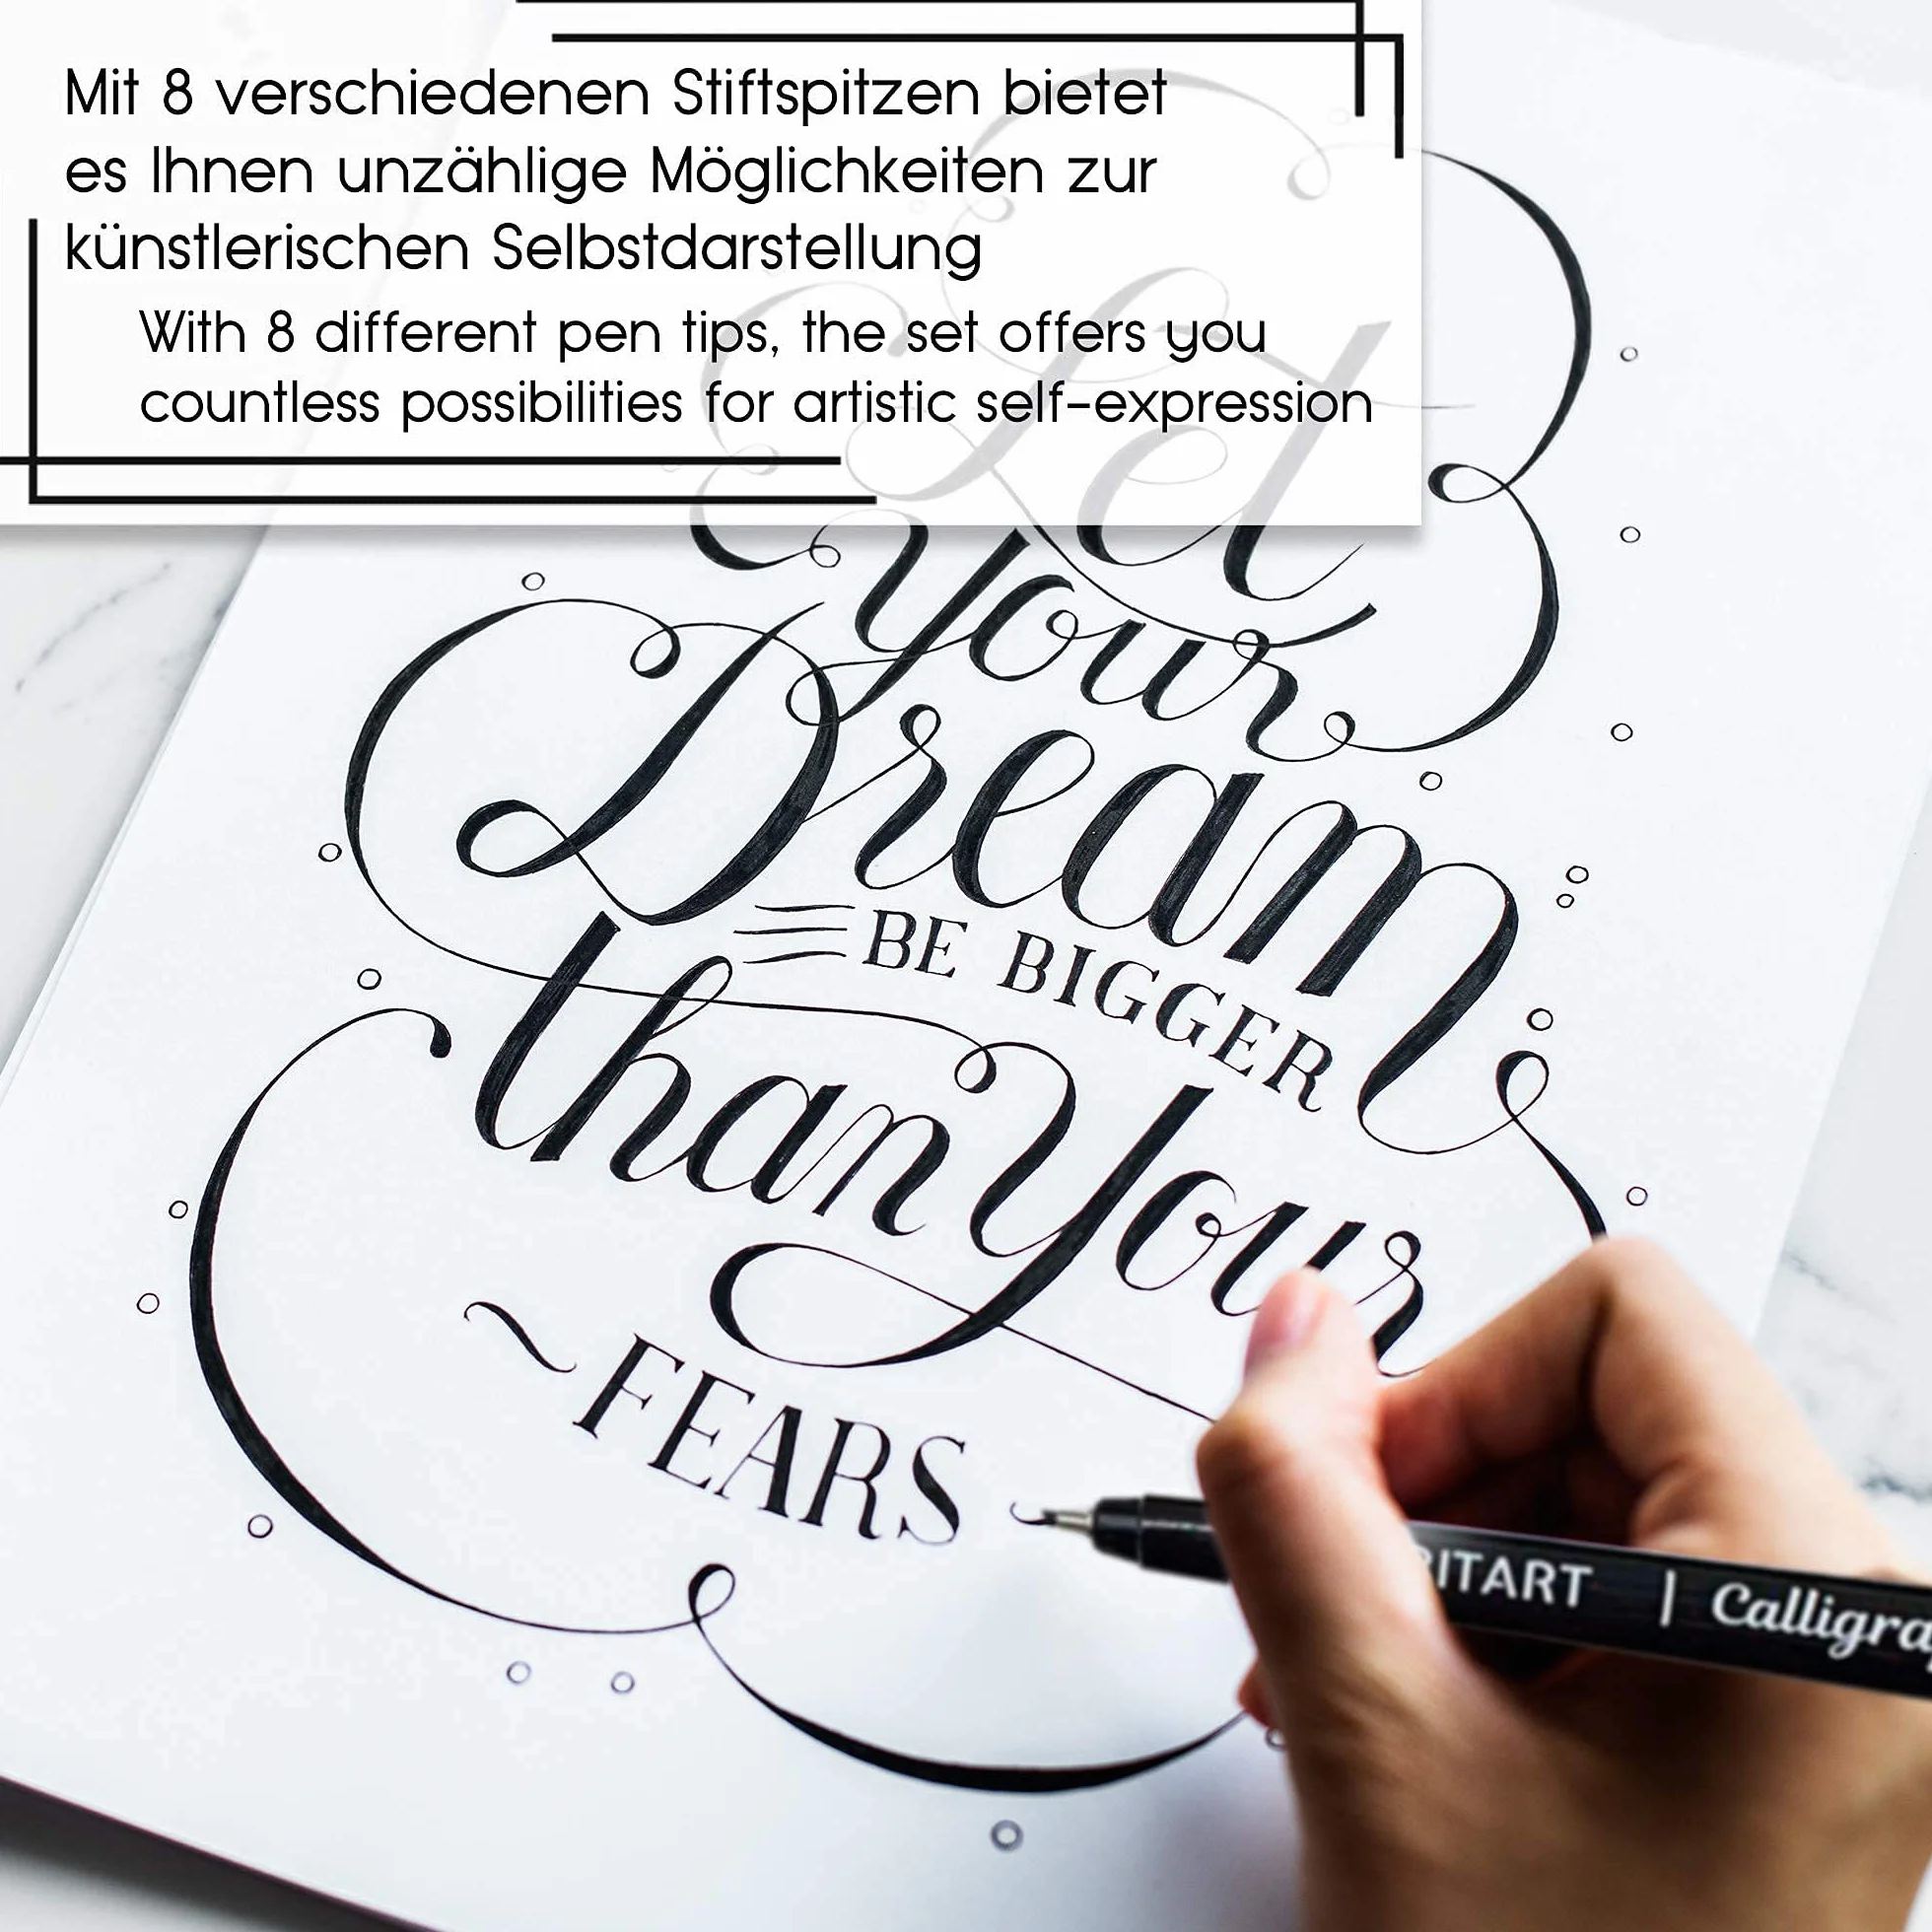 Mit 8 verschiedenen Stiftspitzen bietet
es Ihnen unzählige Möglichkeiten zur
künstlerischen Selbstdarstellung
With 8 different pen tips, the set offers you
countless possibilities for artistic self-expression
Let
Your
Dream
BE BIGGER
than Your
~FEARS